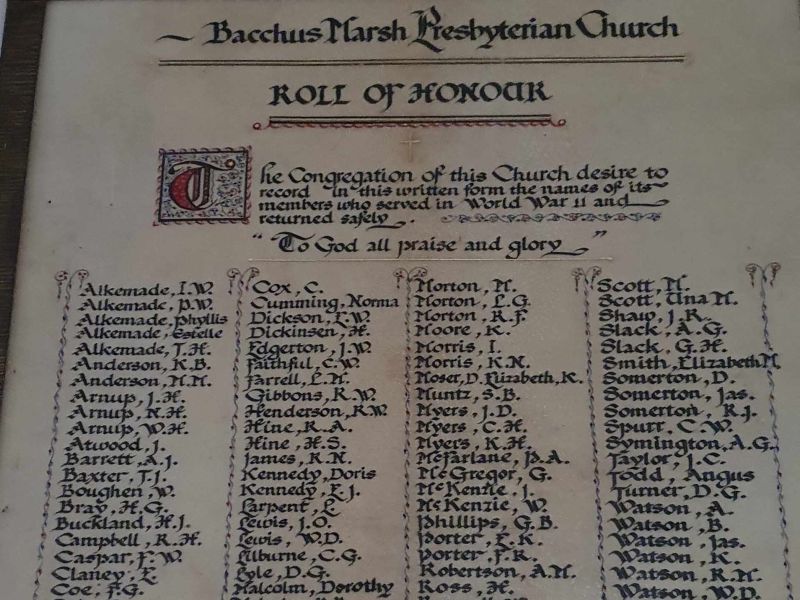 Bacchus Marsh Presbyterian Church
ROLL OF HONOUR
The Congregation of this Church desire to
record in this written form the names of its
members who served in World War II and
returned safely.
"To God all praise and glory"
Alkemade, I.W.
Alkemade, P.W.
Alkemade, Phyllis
Alkemade, Estelle
Alkemade, T.H.
Anderson, K.B.
Anderson, M.M.
Arnup, J.H.
Arnup, N.H.
Arnup, W.H.
Atwood, J.
Barrett, A.J.
Baxter, T.J.
Boughen, W.
Bray, H.G.
Buckland, H.J.
Campbell, R.H.
Caspar, F.W.
Clancy, E.
Coe, F.G.
Cox, C.
Cumming, Norma
Dickson, E.W.
Dickinsen, H.
Edgerton, J.W.
Faithful, C.W.
Farrell, L.M.
Gibbons, R.W.
Henderson, R.W.
Hine, R.A.
Hine, H.S.
James, R.N.
Kennedy, Doris
Kennedy, E.J.
Larpent, L.
Lewis, J.O.
Lewis, W.D.
Lilburne, C.G.
Lyle, D.G.
Malcolm, Dorothy
Morton, M.
Morton, L.G.
Morton, R.F.
Moore, K.
Morris, I.
Morris, K.N.
Moser, D. Elizabeth, K.
Muntz, S.B.
Myers, J.D.
Myers, C.H.
Myers, K.H.
McFarlane, P.A.
McGregor, G.
McKenzie, J.
McKenzie, W.
Phillips, G.B.
Porter, E.K.
Porter, F.R.
Robertson, A.M.
Ross, H.
Scott, M.
Scott, Una M.
Shaw, J.R.
Slack, A.G.
Slack, G.H.
Smith, Elizabeth M.
Somerton, D.
Somerton, Jas.
Somerton, R.J.
Spurr, C.W.
Symington, A.G.
Taylor, J.C.
Todd, Angus
Turner, D.G.
Watson, A.
Watson, B.
Watson, Jas.
Watson, K.
Watson, R.M.
Watson, W.D.